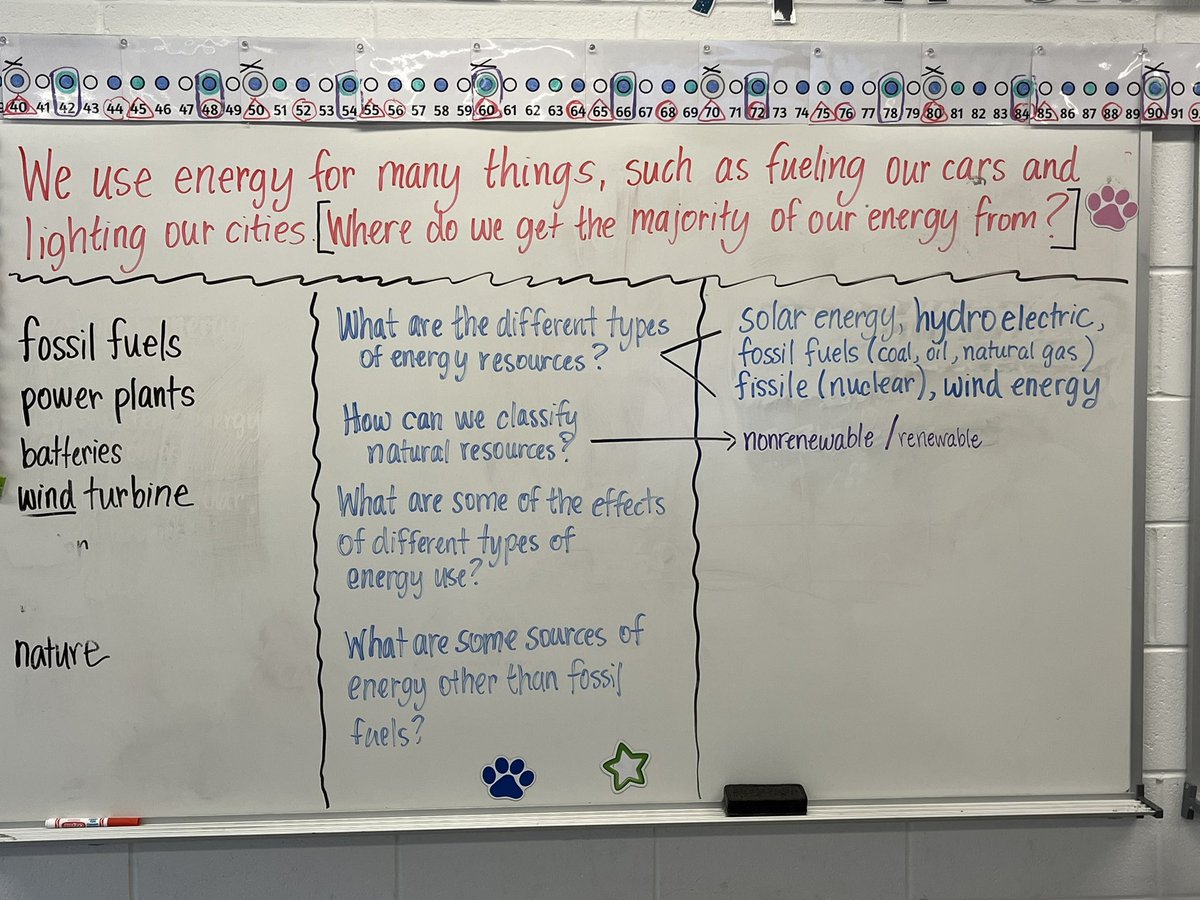 40 41 42 43 44 45 46 47 48 49 50 51 52 53 54 55 56 57 58 59 60 61 62 63 64 65 66 67 68 69 70 71 72 73 74 75 76 77 78 79 80 81 82 83 84 85 86 87 88 89 90 91
We use energy for many things, such as fueling our cars and
lighting our cities. [Where do we get the majority of our energy from?]
fossil fuels
power plants
batteries
wind turbine
n
nature
What are the different types
of energy resources?
How can we classify
natural resources?
What are some of the effects
of different types of
energy use?
What are some sources of
energy other than fossil
fuels?
solar energy, hydroelectric,
fossil fuels (coal, oil, natural gas)
fissile (nuclear), wind energy
nonrenewable / renewable